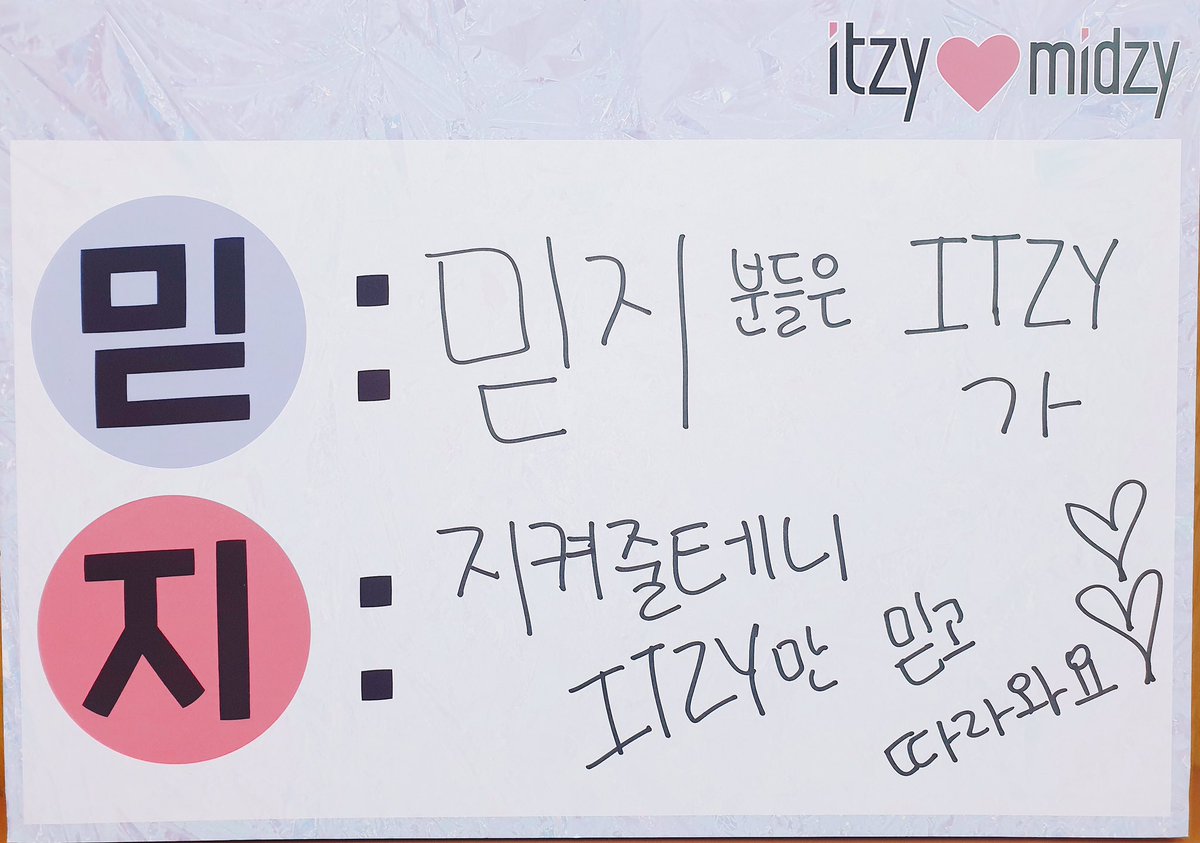 itzy midzy
믿 : 믿지 분들은 ITZY
가
지 : 지켜줄테니
ITZY만 믿고
따라와요